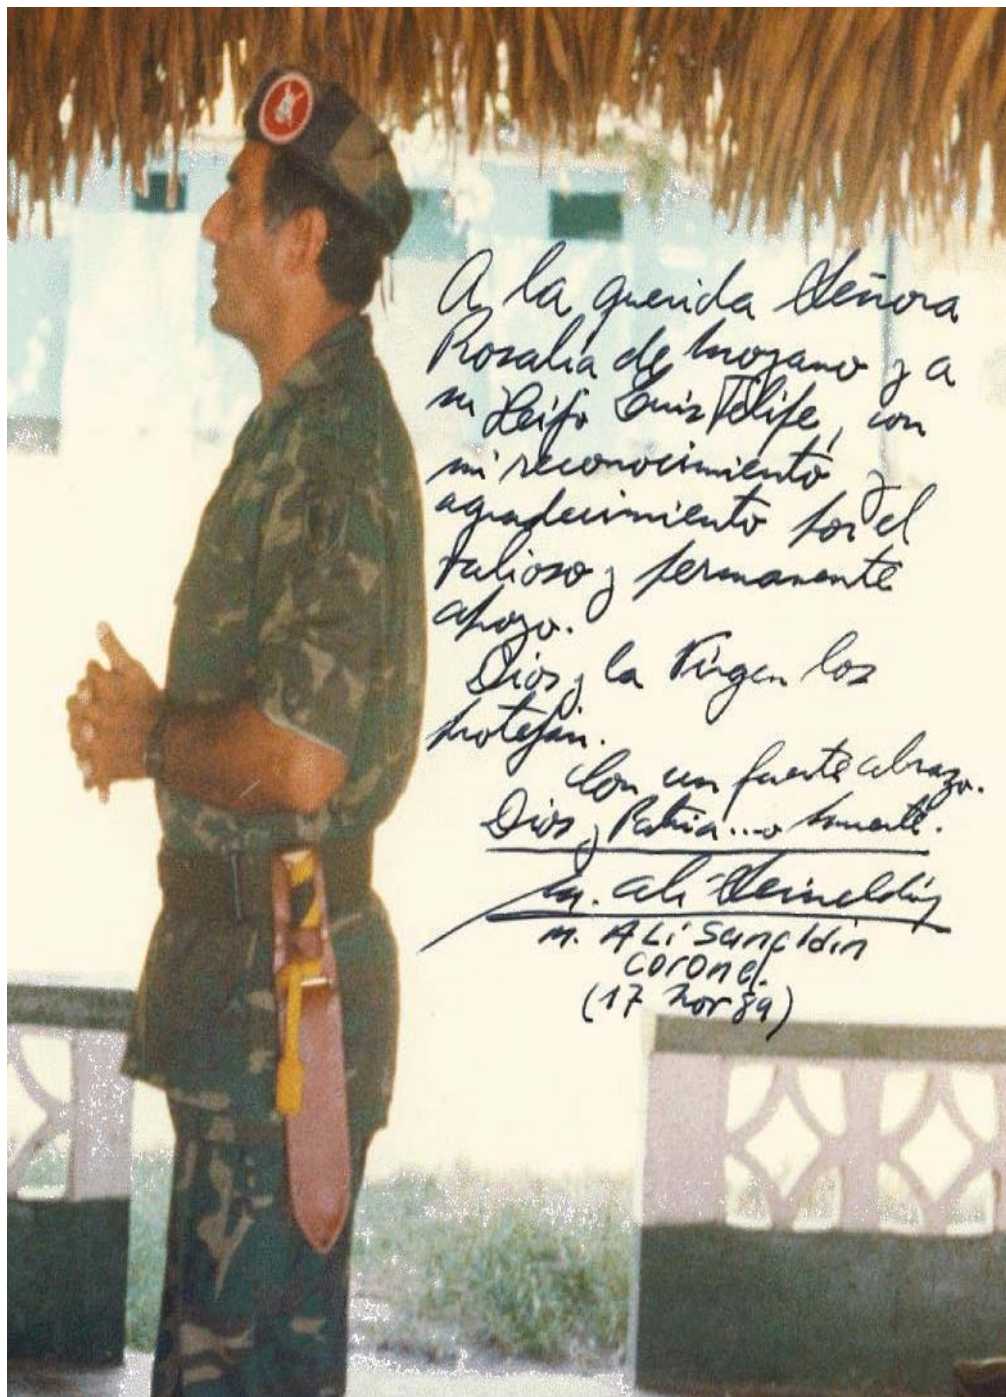 A la querida Señora
Rosalía de Moyano y a
su Heijo Luis Felipe, con
mi reconocimiento y
agradecimiento por el
valioso y permanente
apoyo.
Dios y la Virgen los
protejan.
Con un fuerte abrazo.
Dios y Patria...o muerte.
M. Ali Seineldín
M. ALí Seineldin
coronel.
(17 Nov 89)